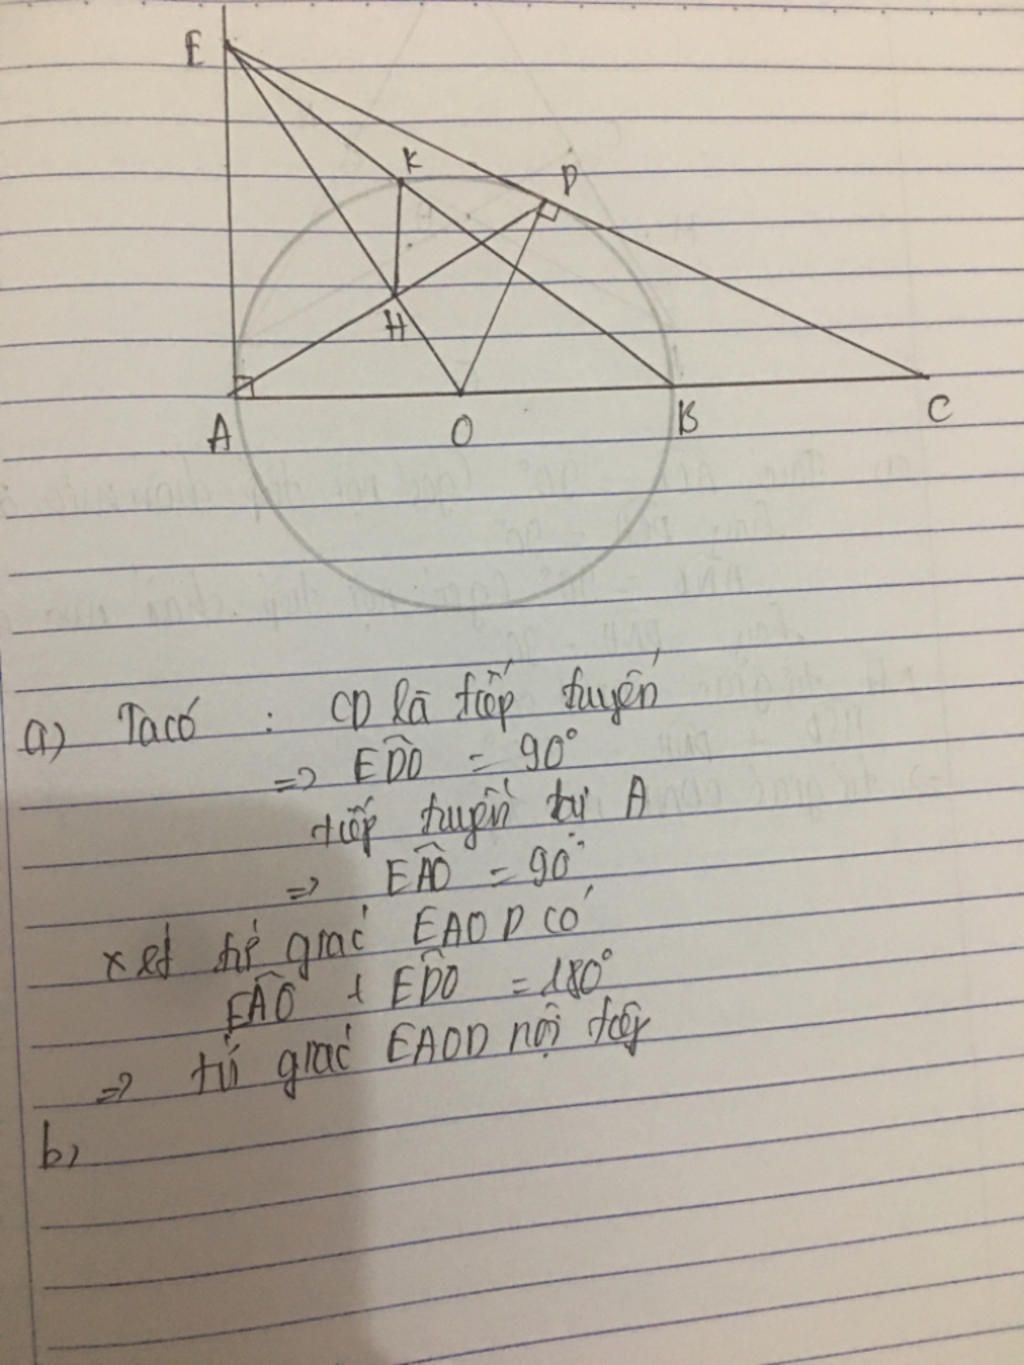 E
K
D
H
A
O
B
C
a) Ta có : CD là tiếp tuyến
=> EDO = 90°
tiếp tuyến tại A
=> EAO = 90°
xét tứ giác EAOD có
EAO + EDO = 180°
=> tứ giác EAOD nội tiếp
b)